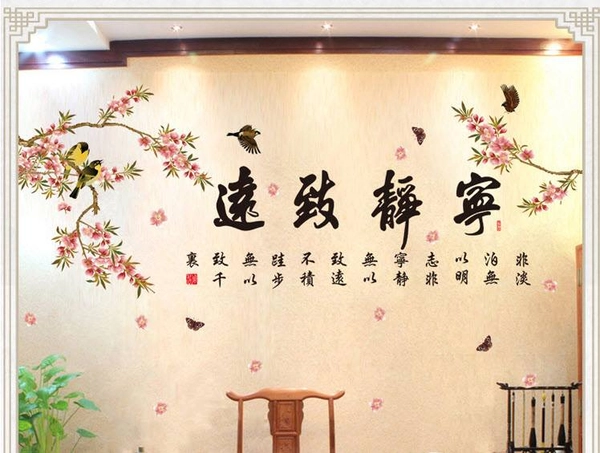 寧靜致遠
非淡
泊無
以明
志非
寧靜
無以
致遠
不積
跬步
無以
致千
裏